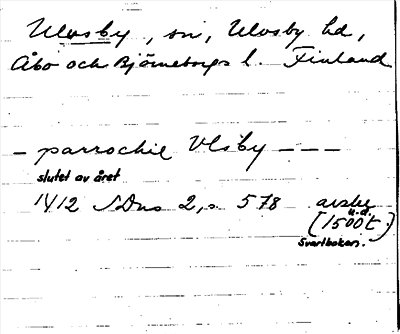 Ulvsby, sn, Ulvsby hd,
Åbo och Björneborgs l. Finland
– parrochie Vlsby – – –
slutet av året
1412 SDns 2, s. 578 avskr
u.d.
(1500t.)
Svartboken.